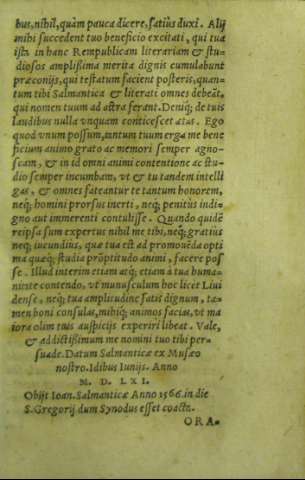 bus, nihil, quàm pauca dicere, satius duxi. Alij
mihi succedent tuo beneficio excitati, qui tua
ista in hanc Rempublicam literariam & stu-
diosos amplissima merita dignis cumulabunt
præconijs, qui testatum facient posteris, quan-
tum tibi Salmantica & literati omnes debeāt,
qui nomen tuum ad astra ferant. Deniq; de tuis
laudibus nulla vnquam conticescet ætas. Ego
quod vnum possum, tantum tuum erga me bene
ficium animo grato ac memori semper agno-
scam, & in id omni animi contentione ac stu-
dio semper incumbam, vt & tu tandem intelli
gas, & omnes fateantur te tantum honorem,
neq; homini prorsus inerti, neq; penitùs indi-
gno aut immerenti contulisse. Quando quidē
reipsa sum expertus nihil me tibi, neq; gratius
neq; iucundius, qua tua est ad promouēda opti
ma quæq; studia prōptitudo animi, facere pos
se. Illud interim etiam atq; etiam à tua huma-
nitate contendo, vt munusculum hoc licet Liui
dense, neq; tua amplitudine satis dignum, ta-
men boni consulas, mihiq; animos facias, vt ma
iora olim tuis auspicijs experiri libeat. Vale,
& addictissimum me nomini tuo tibi per-
suade. Datum Salmanticæ ex Musæo
nostro. Idibus Iunijs. Anno
M. D. LXI.
Obijt Ioan. Salmanticæ Anno 1566. in die
S. Gregorij dum Synodus esset coacta.
ORA-